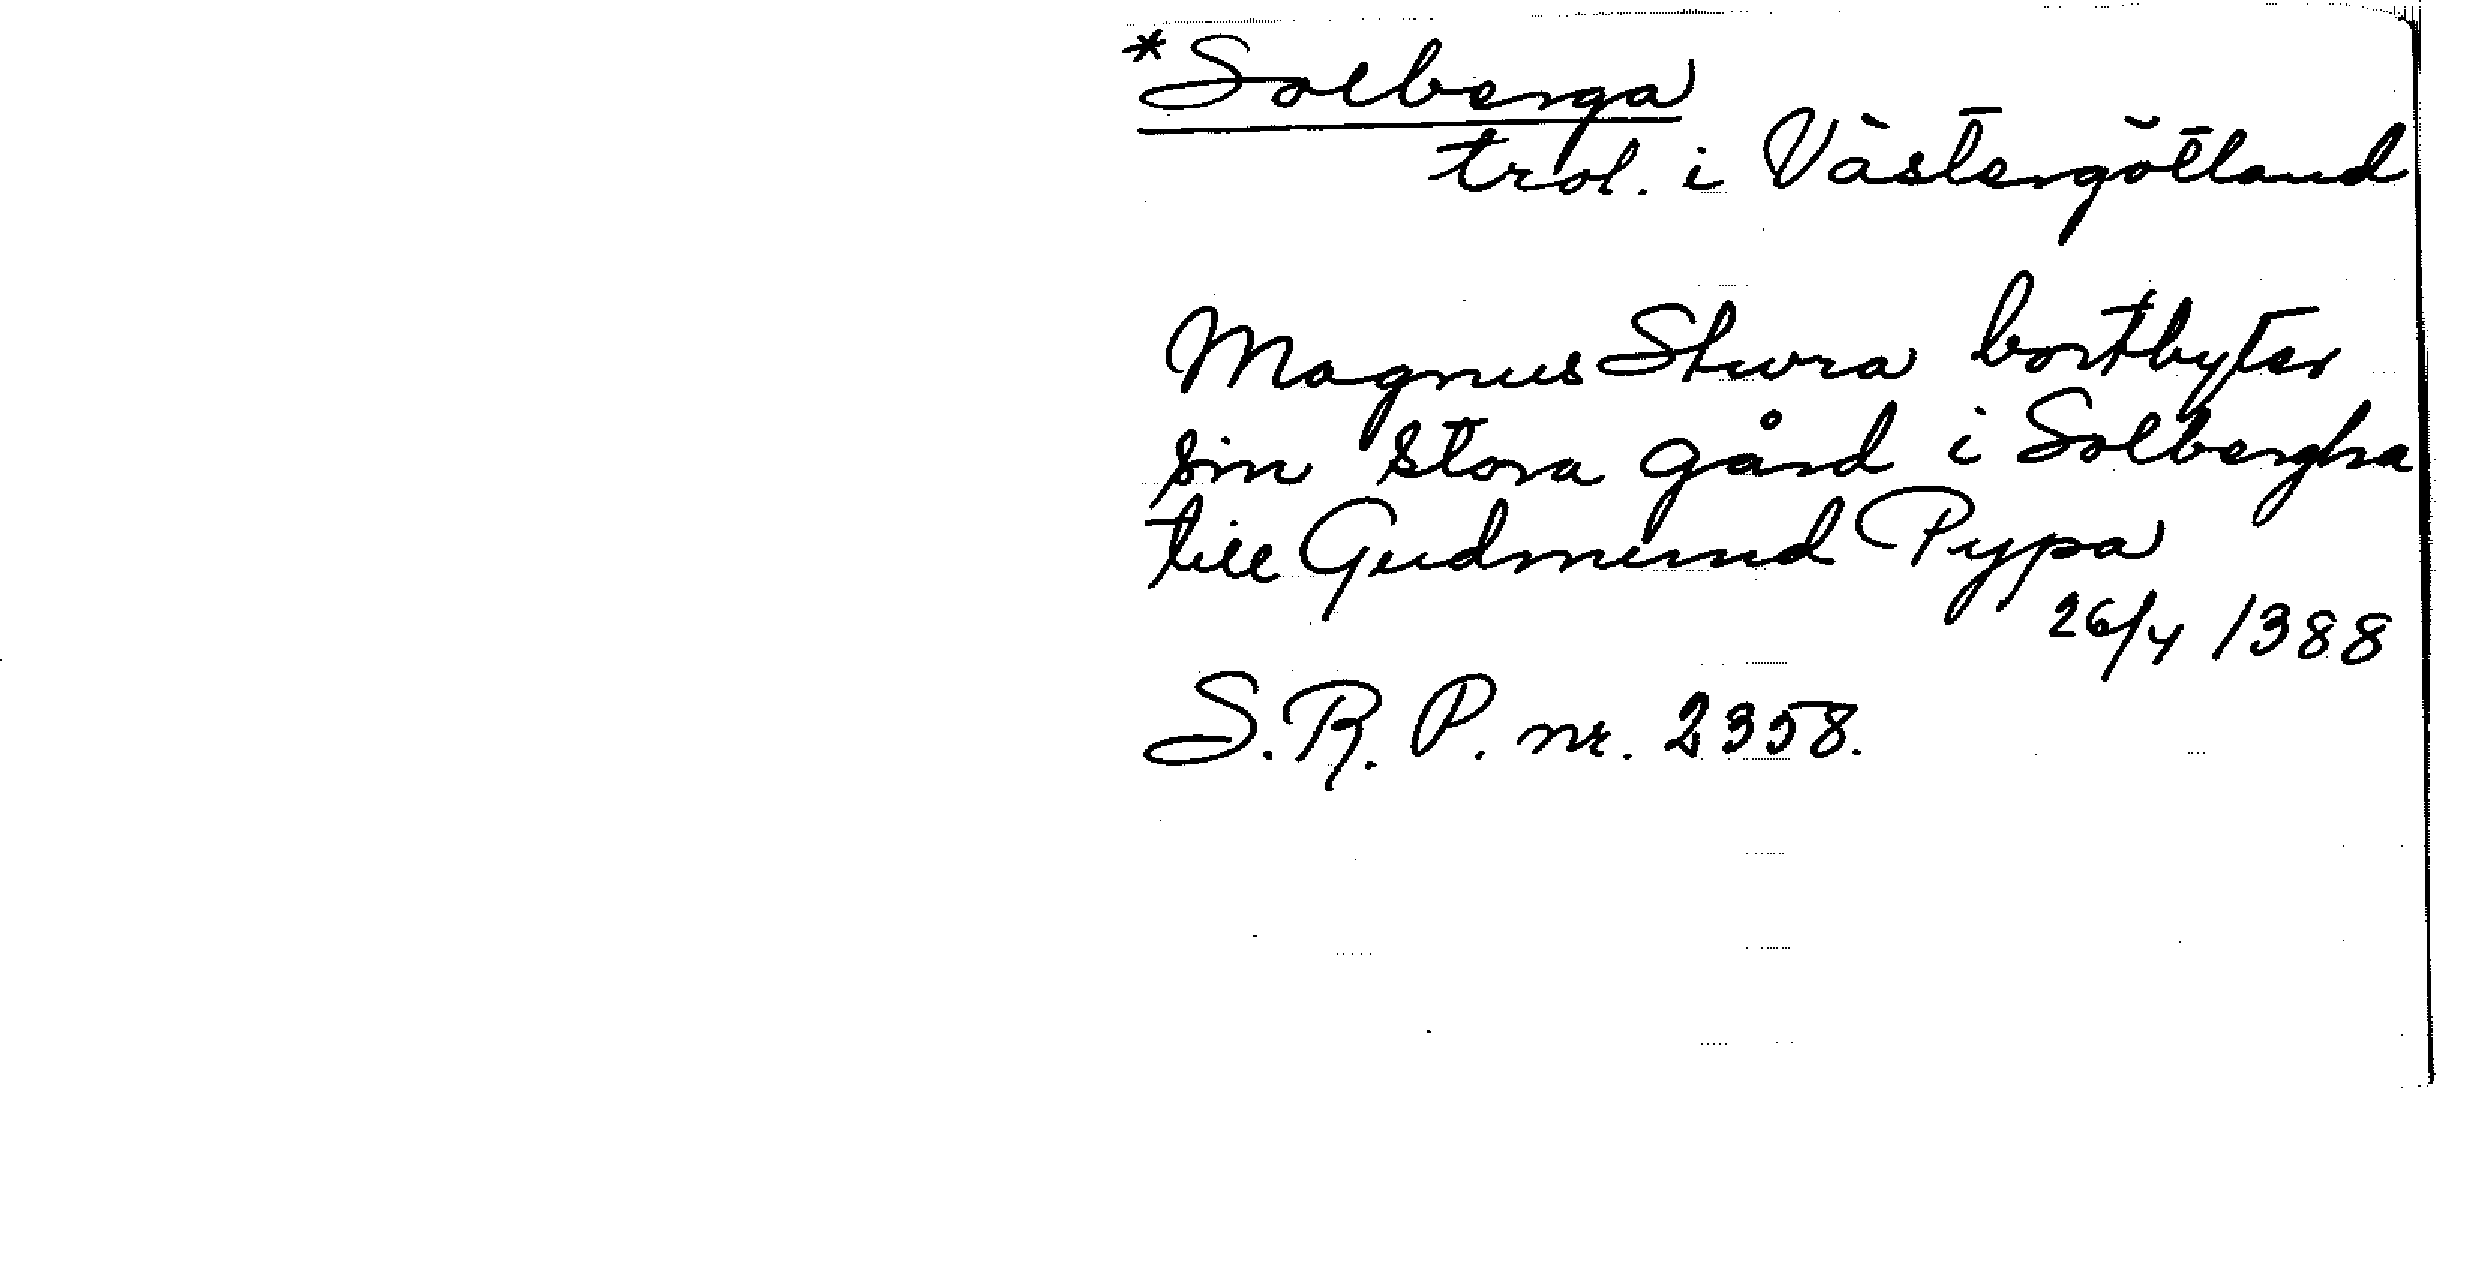 *Solberga
trol. i Västergötland
Magnus Stura bortbyter
sin stora gård i Solbergha
till Gudmund Pypa
26/4 1388
S. R. P. nr. 2358.